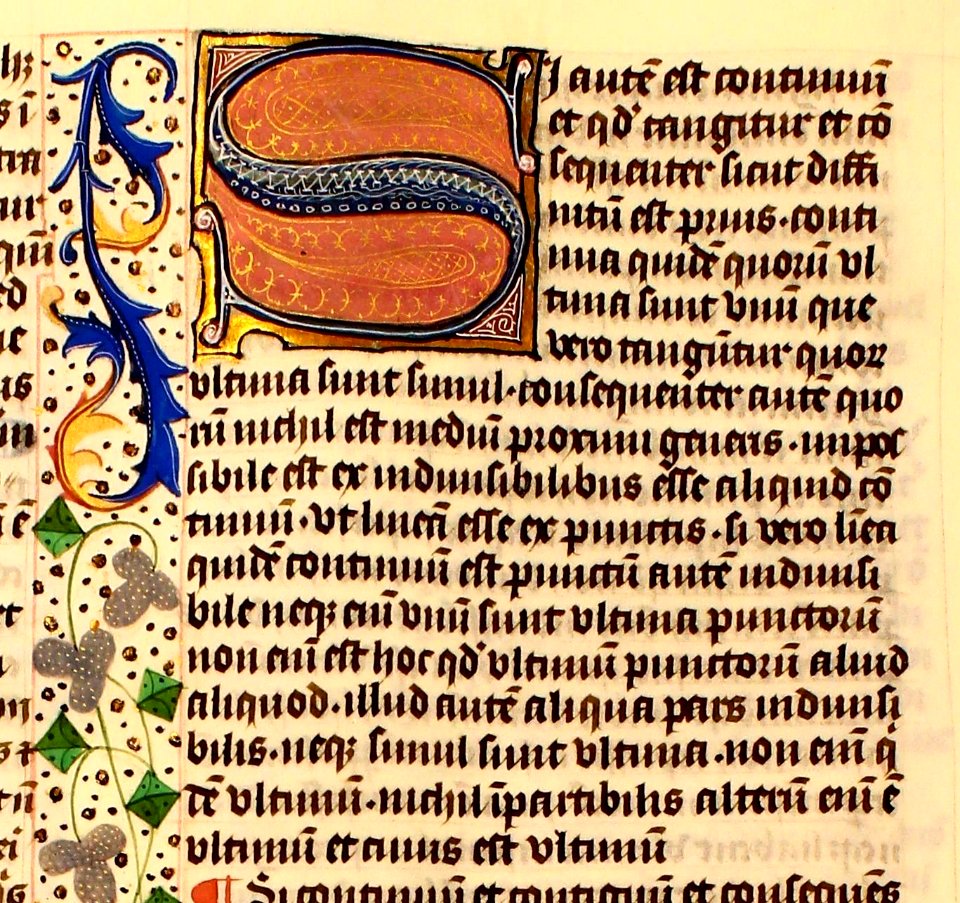 Si autē est continuū
et qd' tangitur et cō
sequenter sicut diffi
nitū est prius · conti
nua quidē quorū vl
tima sunt vnū que
vero tangūtur quorū
vltima sunt simul · consequenter autē quo
rū nichil est mediū proximi generis · impos
sibile est ex indiuisibilibus esse aliquid cō
tinuū · vt lineā esse ex punctis · si vero linea
quidē continuū est punctū autē indiuisi
bile neqꝫ eni vnū sunt vltima punctorū
non eni est hoc qd' vltimū punctorū aliud
aliquod · illud autē aliqua pars indiuisi
bilis · neqꝫ simul sunt vltima · non eni q'
dē vltimū · nichil īpartibilis alterū eni ē
vltimū et cuius est vltimū
¶ Si continuū et contiguū et consequēs